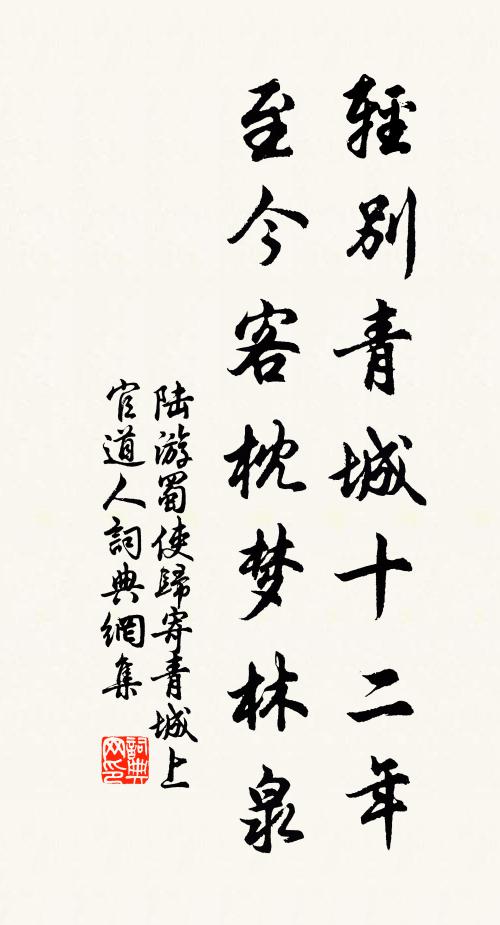 輕別青城十二年
至今客枕梦林泉
陆游蜀使歸寄青城上
官道人詞典網集
詞典网印